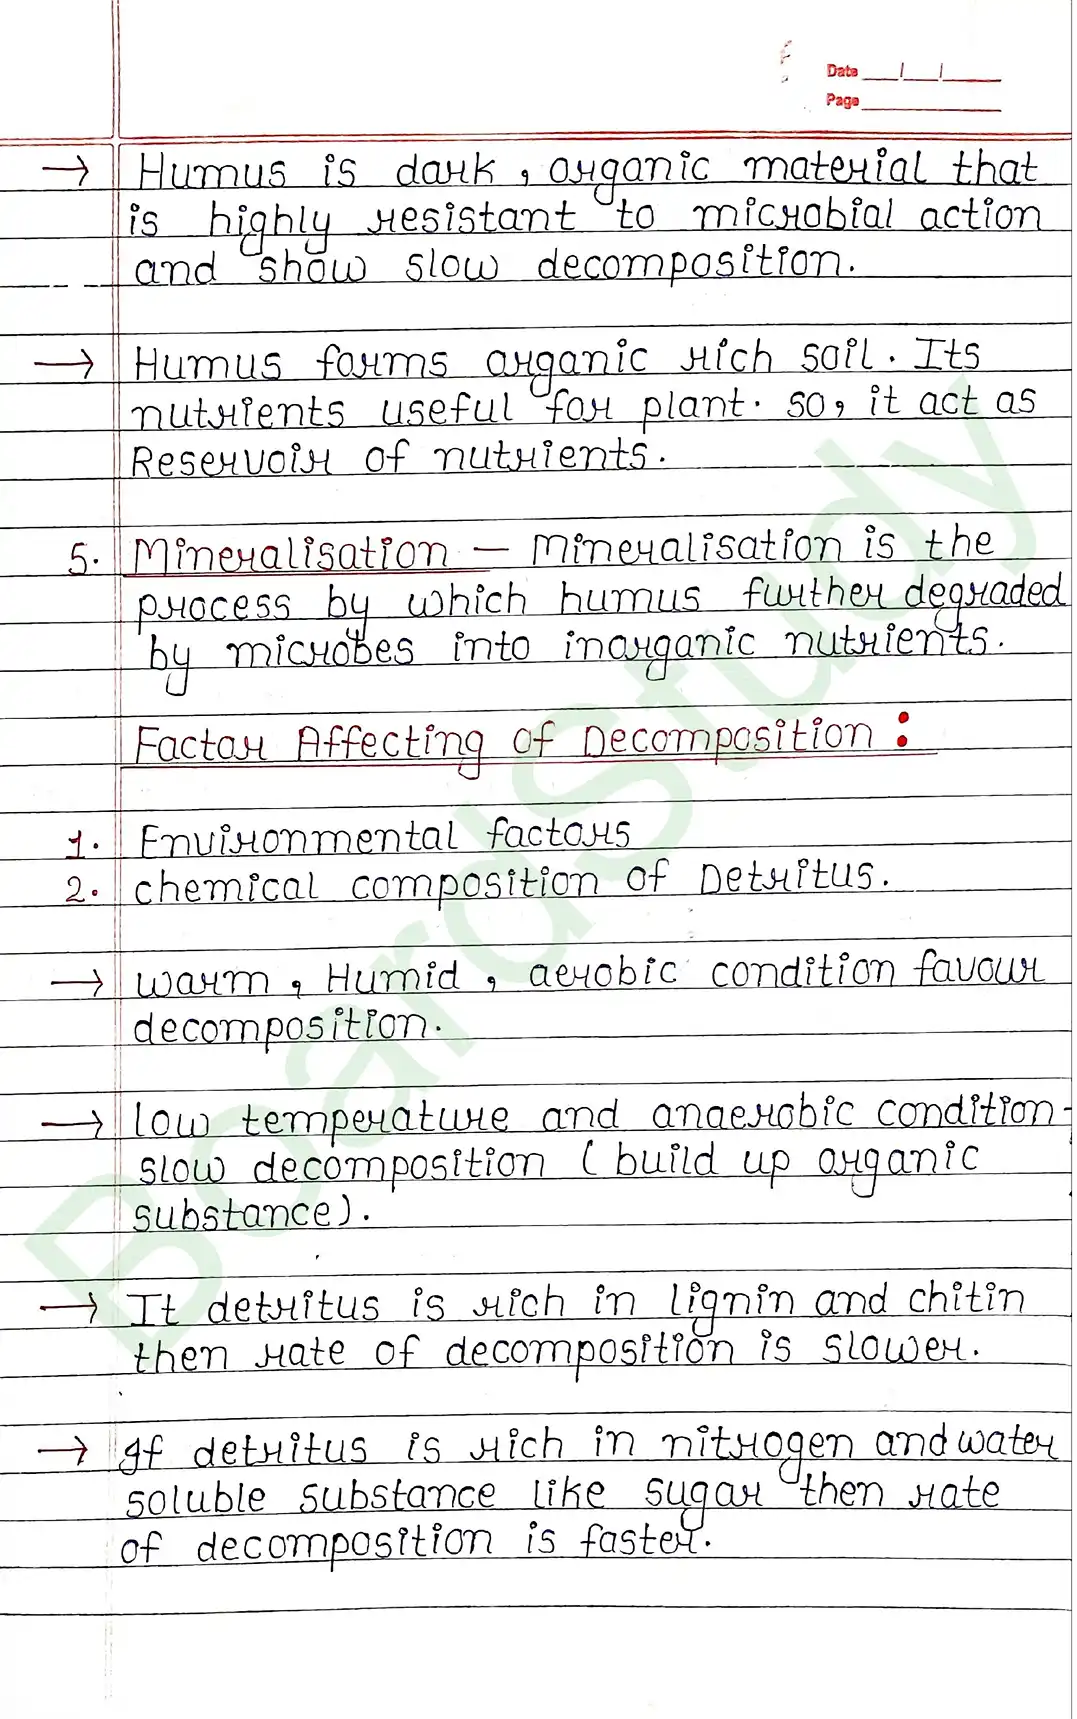 Date __/__/____
Page ________
→ Humus is dark, organic material that
is highly resistant to microbial action
and show slow decomposition.
→ Humus forms organic rich soil. Its
nutrients useful for plant. so, it act as
Reservoir of nutrients.
5. Mineralisation — Mineralisation is the
process by which humus further degraded
by microbes into inorganic nutrients.
Factor Affecting of Decomposition :
1. Environmental factors
2. chemical composition of Detritus.
→ warm, Humid, aerobic condition favour
decomposition.
→ low temperature and anaerobic condition-
slow decomposition (build up organic
substance).
→ It detritus is rich in lignin and chitin
then rate of decomposition is slower.
→ If detritus is rich in nitrogen and water
soluble substance like sugar then rate
of decomposition is faster.
BoardStudy